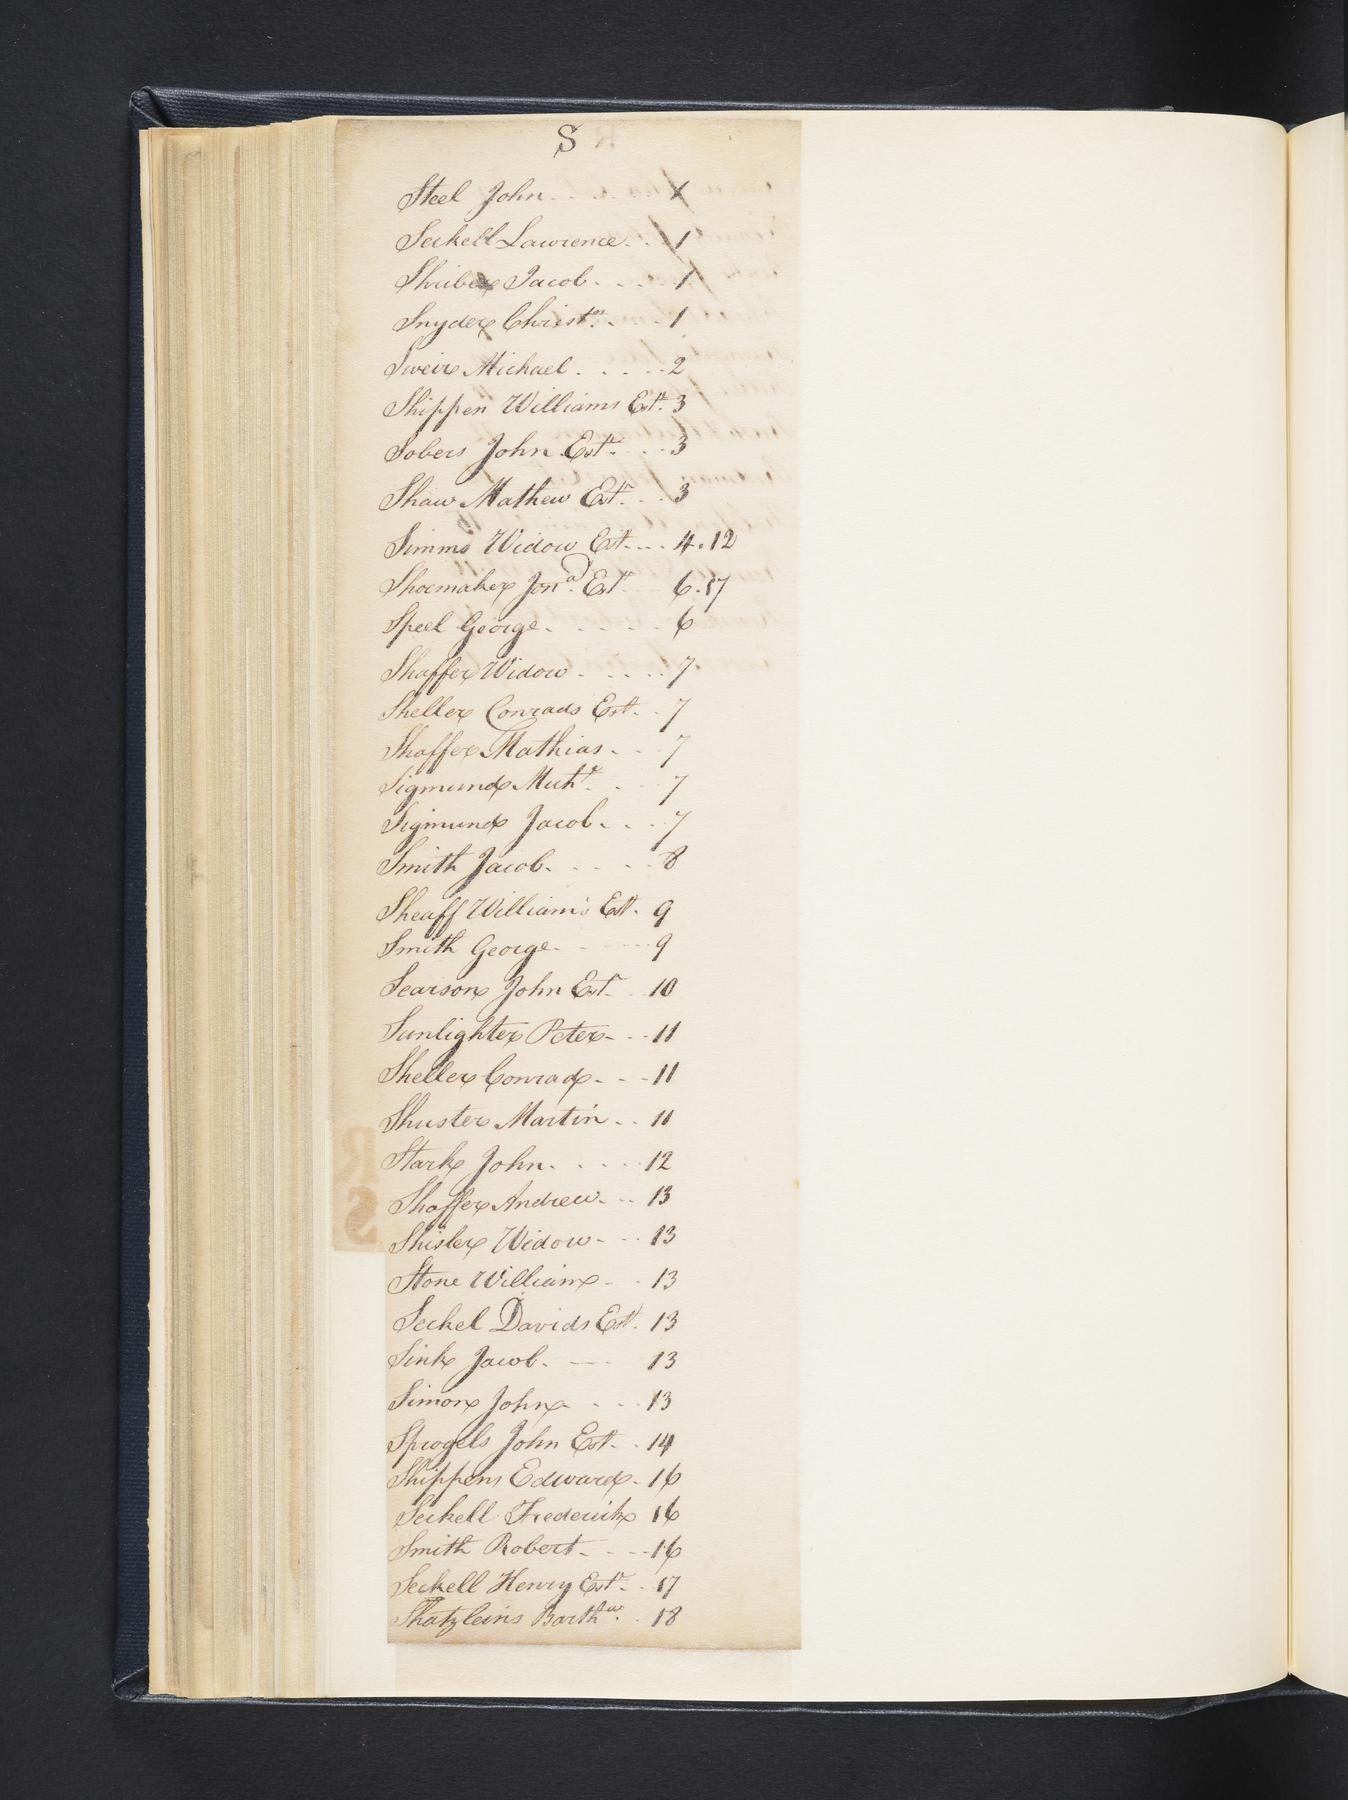 S
Steel John - - - X
Seckell Lawrence - - 1
Shriber Jacob - - - - 1
Snyder Christn. - - - 1
Sweir Michael - - - - - 2
Shippen Williams Est. 3
Sobers John Est. - - - 3
Shaw Mathew Est. - - 3
Simms Widow Est. - - - 4.12
Shoemaker Jona. Est. 6.17
Speel George - - - - - 6
Shaffer Widow - - - - - 7
Sheller Conrads Est. - - 7
Shaffer Mathias - - - 7
Sigmund Michl. - - - 7
Sigmund Jacob - - - - 7
Smith Jacob - - - - - 8
Sheaff William's Est. 9
Smith George - - - - - 9
Searson John Est. - - 10
Sunlighter Peter - - - 11
Sheller Conrad - - - 11
Shuster Martin - - 11
Stark John - - - - - 12
Shaffer Andrew - - - 13
Shisler Widow - - - 13
Stone William - - 13
Seckel Davids Est. 13
Sink Jacob - — - 13
Simon John - - - - 13
Sprogels John Est. - - 14
Shippens Edward - 16
Seckell Frederick 16
Smith Robert - - - - 16
Seckell Henry Est. - - 17
Shatzleins Barthw. - - 18
R
S